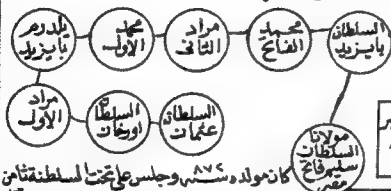 السلطان بايزيد
محمد الفاتح
مراد الثانى
محمد الاول
يلدرم بايزيد
مراد الاول
السلطان اورخان
السلطان عثمان
مولانا السلطان سليم فاتح مصر
كان مولده سنة ٨٧٢ وجلس على تخت السلطنة ثامن